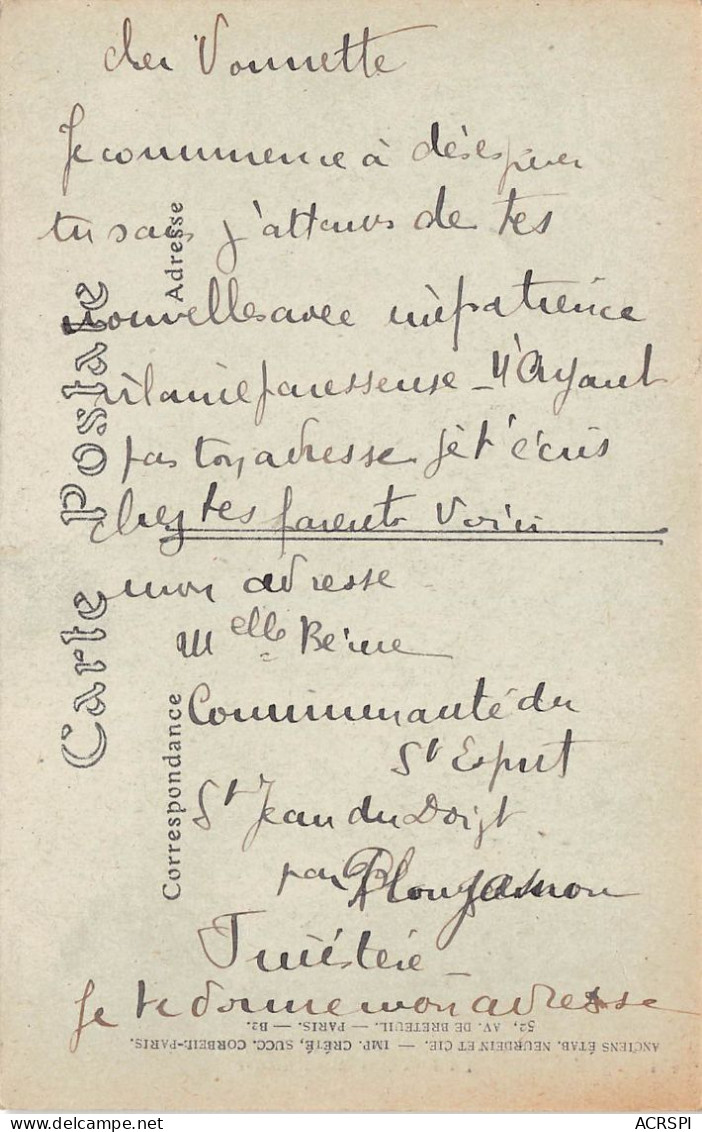 cher Vonnette
Je commence à désespérer
tu sais j'attends de tes
nouvelles avec impatience
vilaine paresseuse - N'Ayant
pas ton adresse je t'écris
chez tes parents Voici
mon adresse
Melle
Communauté du
St Esprit
St Jean du Doigt
par Plougasnou
Finistère -
Je te donne mon adresse
Carte Postale
Correspondance
Adresse
ANCIENS ÉTAB. NEURDEIN ET CIE. — IMP. CRÉTÉ, SUCC. CORBEIL-PARIS.
52, AV. DE BRETEUIL. — PARIS. — B2.
ACRSPI